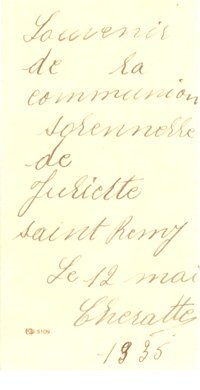 Souvenir
de la
communion
solennelle
de
Juliette
saint Remy
Le 12 mai
Cheratte
1935